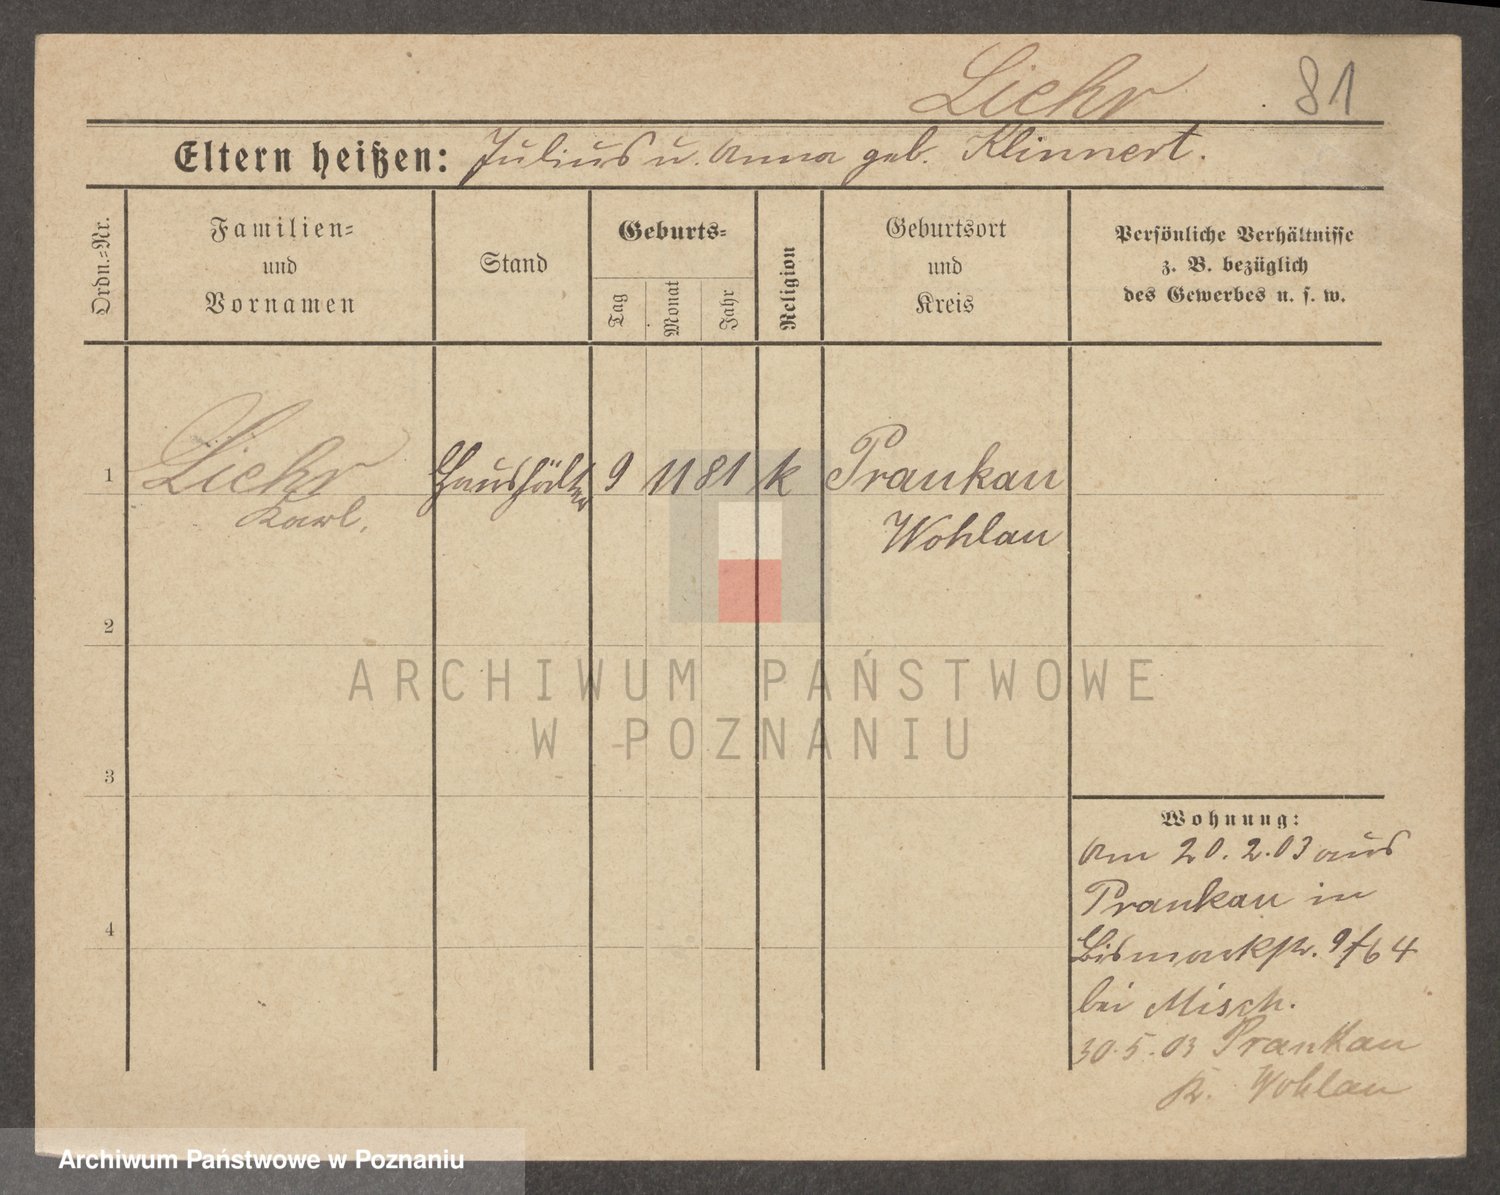 Liehr 81
Eltern heißen: Julius u. Anna geb. Klinnert.
Ordn.-Nr.
Familien-
und
Vornamen
Stand
Geburts-
Tag
Monat
Jahr
Religion
Geburtsort
und
Kreis
Persönliche Verhältnisse
z. B. bezüglich
des Gewerbes u. s. w.
1 Liehr Haushälter 9 11 81 k Praukau
Karl. Wohlau
2
3
4
ARCHIWUM PAŃSTWOWE
W POZNANIU
Wohnung:
Am 20. 2. 03 aus
Praukau in
Bismarkstr. 9/64
bei Misch.
30. 5. 03 Praukau
Kr. Wohlau
Archiwum Państwowe w Poznaniu